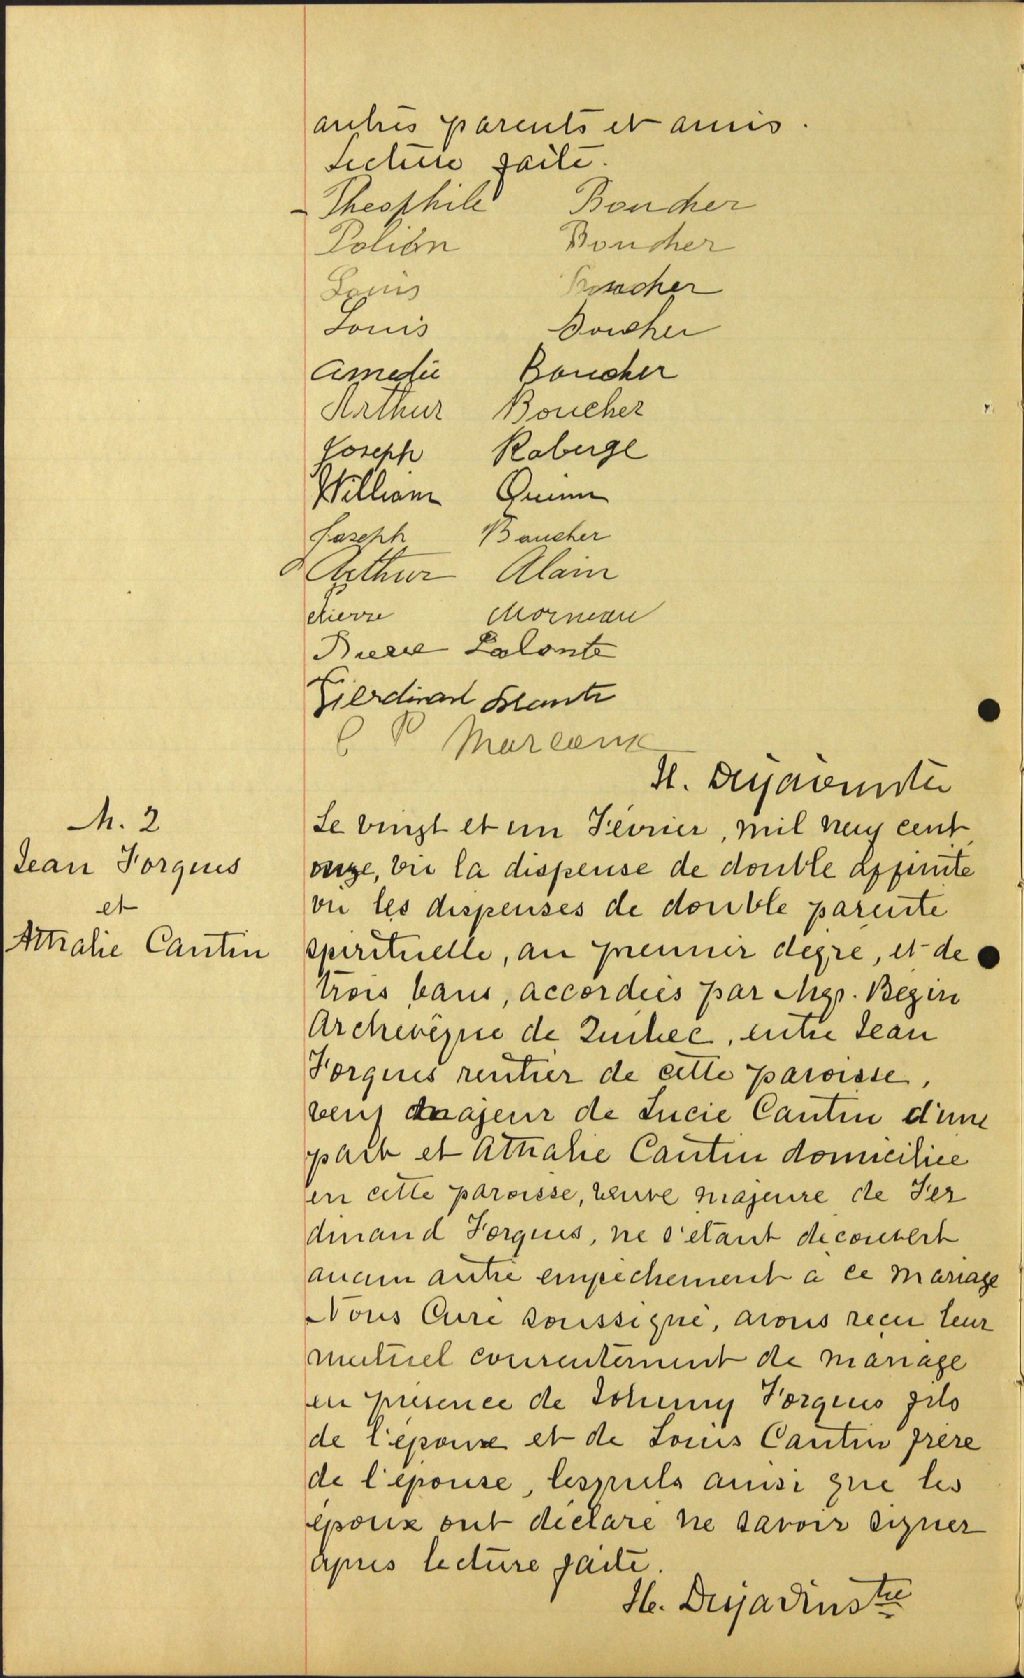 autres parents et amis.
Lecture faite.
Theophile Boucher
Polion Boucher
Louis Boucher
Louis Boucher
Amedée Boucher
Arthur Boucher
Joseph Roberge
William Quinn
Joseph Boucher
Arthur Alain
Pierre Morneau
Pierre Lalonte
Ferdinand
C P Marcoux
H. Desjardins Ptre
M. 2
Jean Forgues
et
Athalie Cantin
Le vingt et un Février, mil neuf cent
onze, vu la dispense de double affinité
vu les dispenses de double parenté
spirituelle, au premier degré, et de
trois bans, accordées par Mgr. Bégin
Archevêque de Québec, entre Jean
Forgues rentier de cette paroisse,
veuf majeur de Lucie Cantin d'une
part et Athalie Cantin domiciliée
en cette paroisse, veuve majeure de Fer
dinand Forgues, ne s'étant découvert
aucun autre empêchement à ce mariage
Nous Curé soussigné, avons reçu leur
mutuel consentement de mariage
en présence de Johnny Forgues fils
de l'époux et de Louis Cantin frère
de l'épouse, lesquels ainsi que les
époux ont déclaré ne savoir signer
après lecture faite.
H. Desjardins Ptre